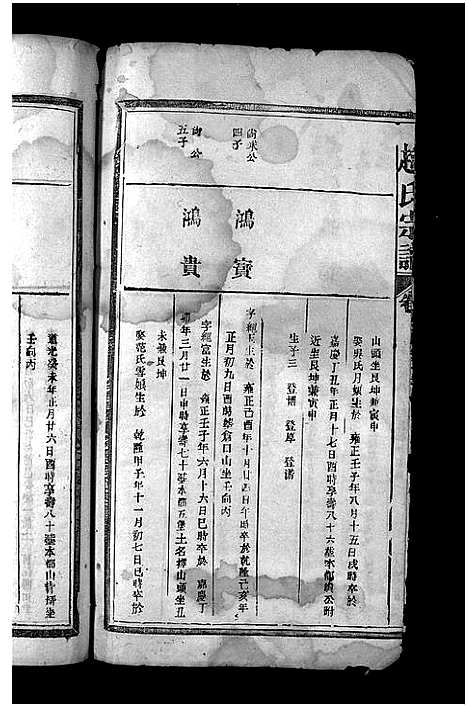 趙氏宗譜
山頭坐艮坤兼寅申
娶吳氏月娘生於 雍正壬子年八月十五日戌時卒於
嘉慶丁丑年正月十七日酉時享壽八十六葬本都公附
近坐艮坤兼寅申
生子三 登 登厚 登
尚公
四子
鴻寶
字經生於 雍正己酉年十月廿四日午時卒於乾隆己亥年
正月初九日酉時葬倉口山坐壬向丙
尚公
五子
鴻貴
字經富生於 雍正壬子年六月十六日巳時卒於 嘉慶丁
卯年三月廿一日申時享壽七十葬本都五堡土名山頭坐丑
未兼艮坤
娶范氏雪娘生於 乾隆甲子年十一月初七日巳時卒於
道光癸未年正月廿六日酉時享壽八十葬本都山背坐
壬向丙